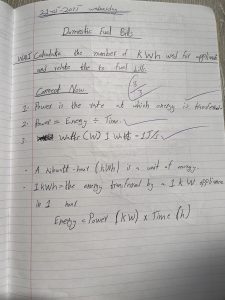 Wednesday
Domestic Fuel Bills
Calculate the number of kWh used for appliances
and relate the to fuel bills
Correct Now
1. Power is the rate at which energy is transferred
2. Power = Energy ÷ Time
3 Watts (W) 1 Watt = 1J/s
- A kilowatt-hour (kWh) is a unit of energy.
- 1kWh = the energy transferred by a 1 kW appliance
in 1 hour
Energy = Power (kW) x Time (h)